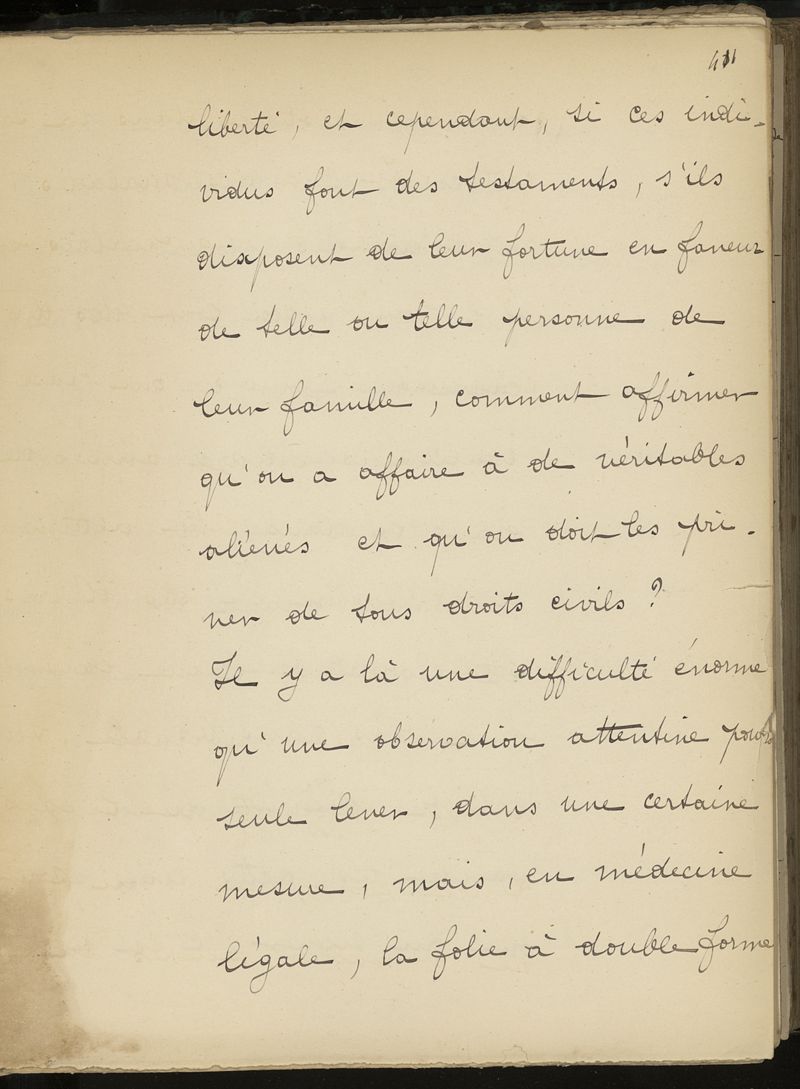 liberté, et cependant, si ces indi-
vidus font des testaments, s'ils
disposent de leur fortune en faveur
de telle ou telle personne de
leur famille, comment affirmer
qu'on a affaire à de véritables
aliénés et qu'on doit les pri-
ver de tous droits civils ?
Il y a là une difficulté énorme
qu'une observation attentive
seule lever, dans une certaine
mesure, mais, en médecine
légale, la folie à double forme